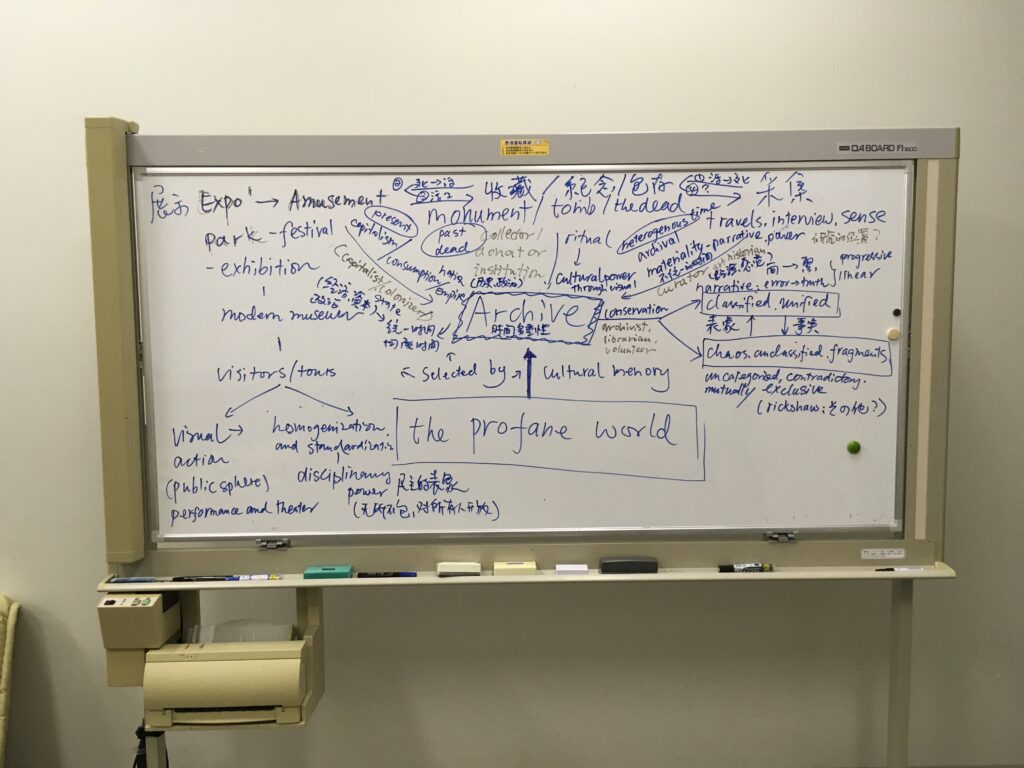 QA BOARD Fi 1600
展示 Expo → Amusement
park - festival
- exhibition
modern museum
visitors/tours
visual →
action
(public sphere)
performance and theater
homogenization
and standardization
disciplinary
power
民主的表象
(无所不包,对所有人开放)
present
capitalism
consumption
(capitalist/colonizer)
empire
统一时间
均质时间
收藏 / 紀念 /
monument / tomb / the dead
past
dead
collector /
donator
institution
ritual
cultural power
through visual
Archive
← Selected by → cultural memory
the profane world
采集
heterogenous time
travels, interview, sense
archival
materiality - narrative, power
curator, art historian
narrative: error → truth
progressive
linear
conservation
archivist,
librarian,
volunteer
classified. unified
表象
事実
chaos. unclassified. fragments
uncategorized, contradictory,
mutually exclusive
(rickshaw: その他?)